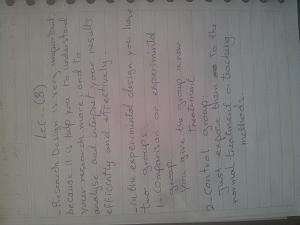 Lec (3)
- Research Design is very important,
because it is help you to understand
your research more, and to
analyse and interpret your results
efficiently and effectively.
- In the experimental design you have
two groups:
1- Comparison or experimental
group
you give the group a new
treatment
2- Control group:
just expose them to the
normal treatment or teaching
methods.